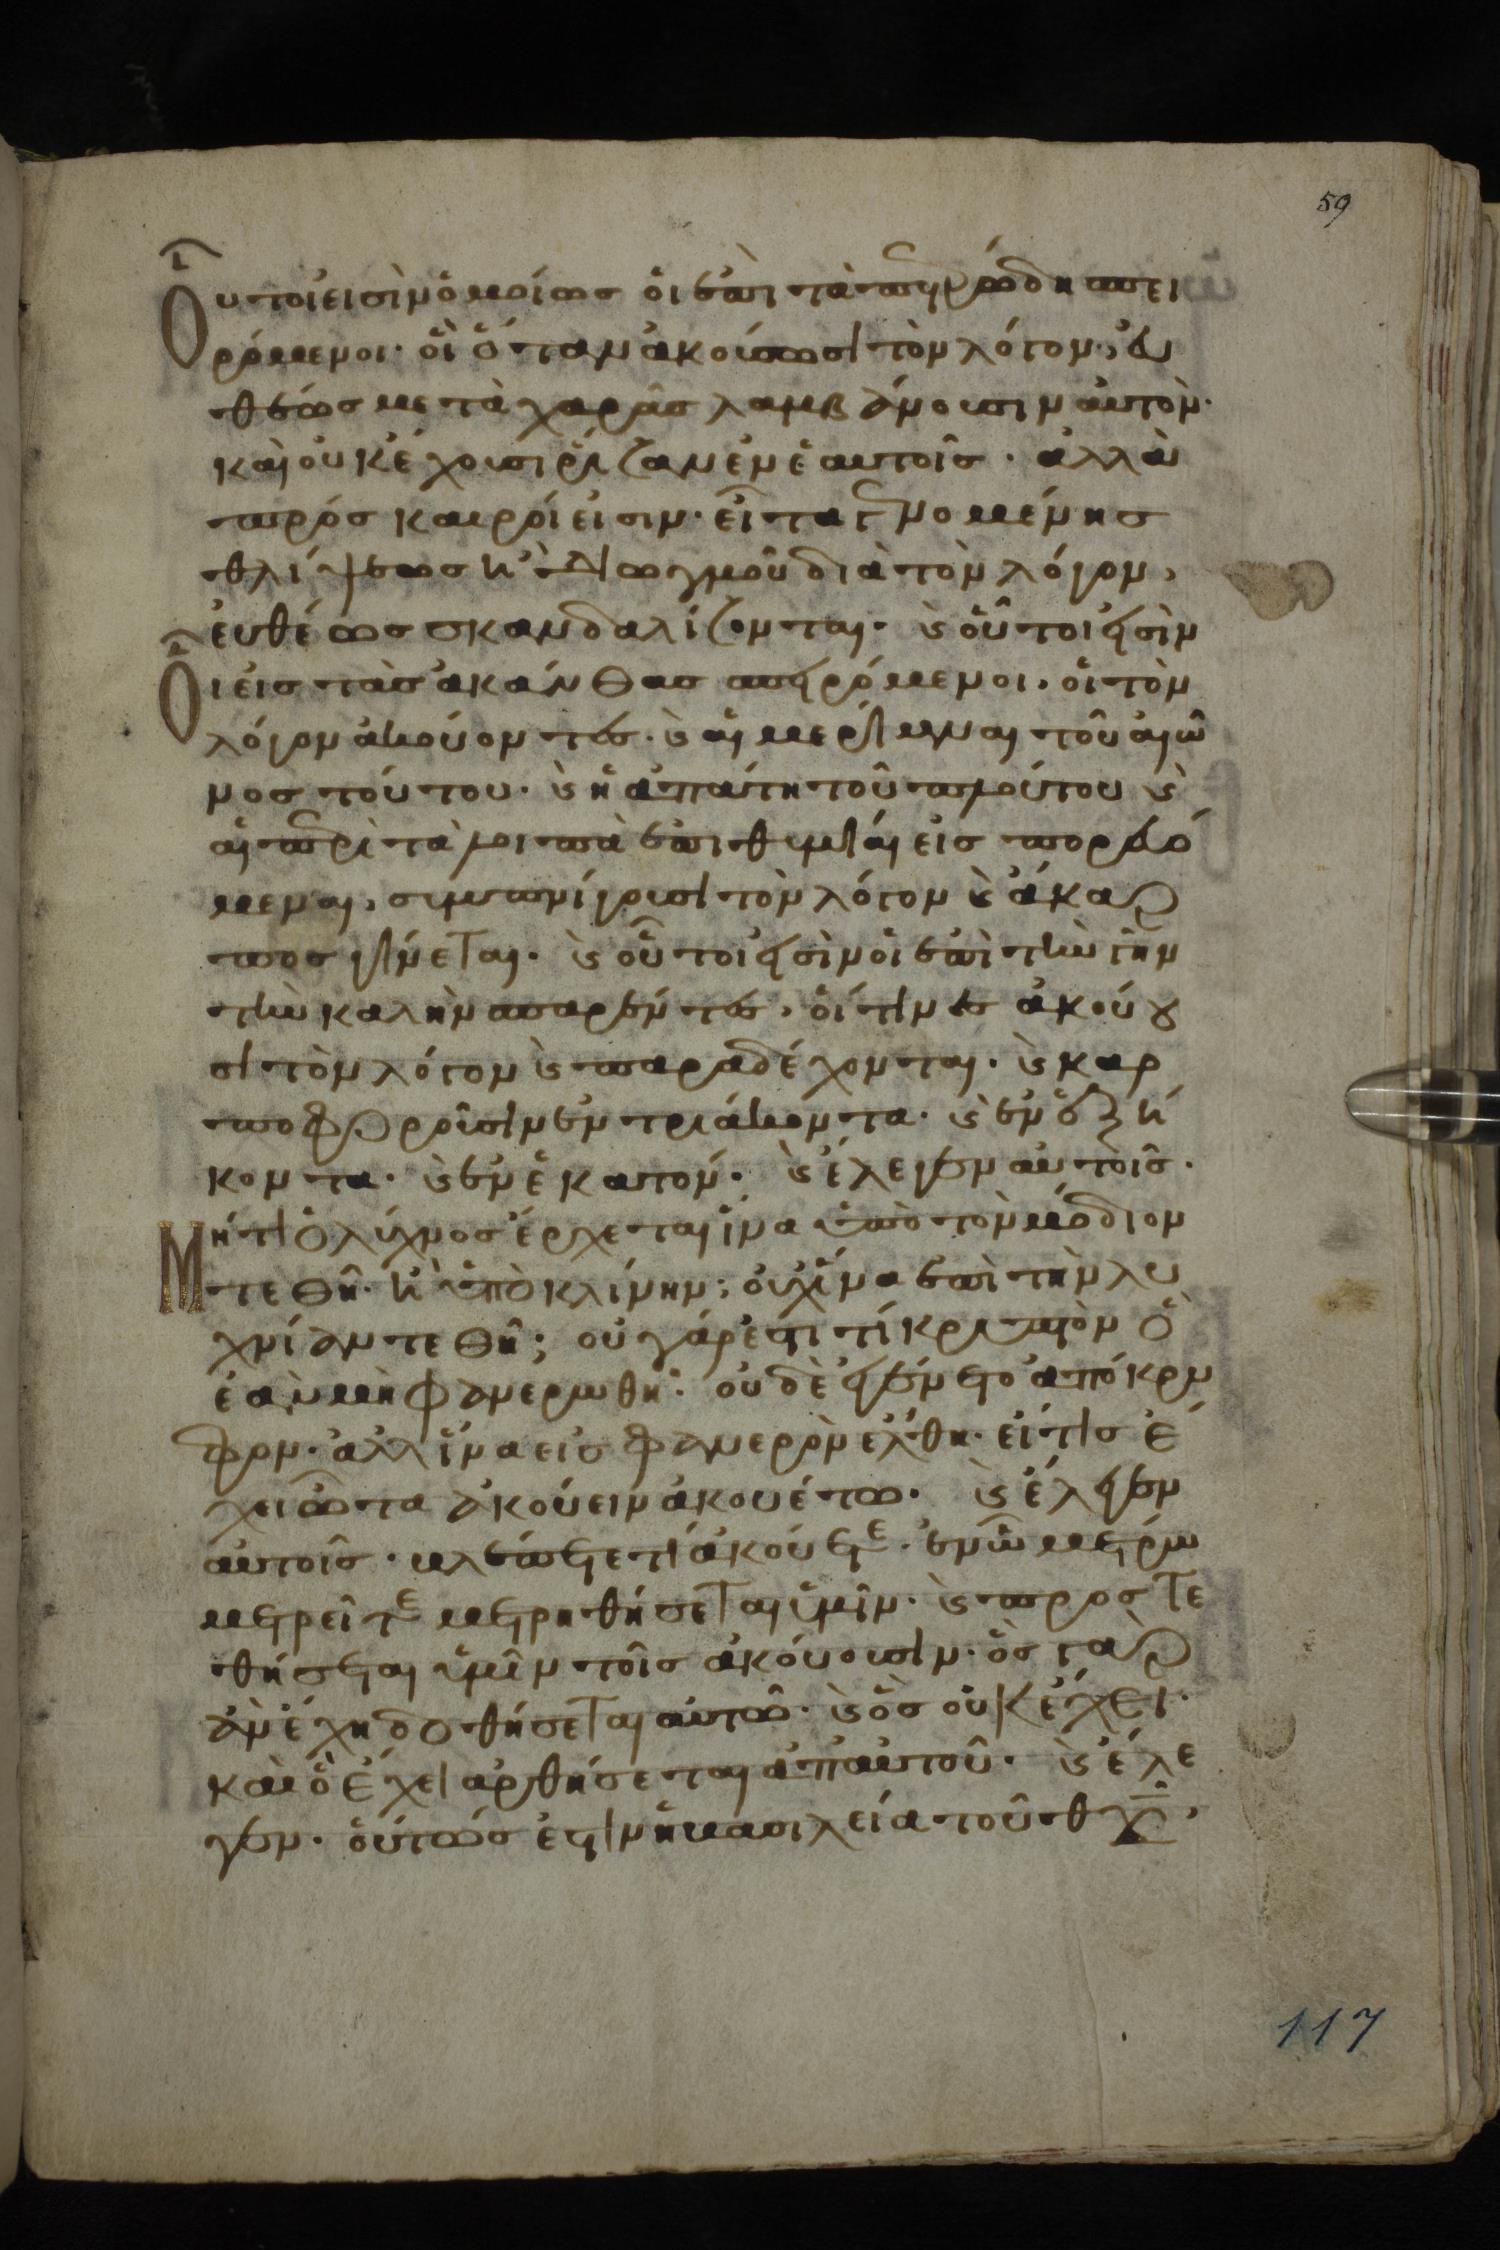 59
Ουτοι εισὶν ὁμοίως ὁι ἐπι τὰ πετρώδη σπει
ρόμενοι· ὁὶ ὅταν ἀκούσωσι τὸν λόγον, ἐυ
θέως μετὰ χαρᾶς λαμβάνουσιν αὐτὸν·
καὶ οὐκ έχουσι ρίζαν ἐν ἑαυτοῖς· ἀλλὰ
πρόσκαιροί εἰσιν· εἶτα γενομένης
θλίψεως ἢ διωγμοῦ διὰ τὸν λόγον,
ἐυθέως σκανδαλίζονται· ϗ οὗτοι εἰσὶν
Οι εἰς τὰς ἀκάνθας σπειρόμενοι, οἱ τὸν
λόγον ἀκούοντες· ϗ αἱ μέριμναι τοῦ αἰῶ
νος τούτου· ϗ ἡ ἀπάτη τοῦ πλούτου ϗ
αἱ περὶ τὰ λοιπὰ ἐπιθυμίαι εἰσπορευό
μεναι, συμπνίγουσι τὸν λόγον ϗ ἄκαρ
πος γίνεται· ϗ οὗτοι εἰσὶν οἱ ἐπὶ τὴν γὴν
τὴν καλὴν σπαρέντες, οἵτινες ἀκούου
σι τὸν λόγον ϗ παραδέχονται· ϗ καρ
ποφοροῦσιν ἐν τριάκοντα· ϗ ἐν ἑξή
κοντα· ϗ ἐν ἑκατόν· ϗ ἔλεγεν αὐτοῖς·
Μήτι ὁ λύχνος ἔρχεται ἵνα ὑπὸ τὸν μόδιον
τεθῆ· ἢ ὑπὸ κλίνην; οὐχ ἵνα ἐπὶ τὴν λυ
χνίαν τεθῆ; οὐ γάρ ἐστι τί κρυπτὸν ὃ
ἐὰν μὴ φανερωθῆ· οὐδὲ ἐγένετο ἀπόκρυ
φον· ἀλλ ἵνα εἰς φανερὸν ἔλθη· εἴ τις έ
χει ὦτα ἀκούειν ἀκουέτω· ϗ έλεγεν
αὐτοῖς· βλέπετε τί ἀκούετε· ἐν ὧ μέτρω
μετρεῖτε μετρηθήσεται ὑμῖν· ϗ προστε
θήσεται ὑμῖν τοῖς ἀκούουσιν· ὃς γαρ
ἀν έχη δοθήσεται αὐτῶ· ϗ ὃς οὐκ ἔχει·
καὶ ὃ έχει αρθήσεται ἀπ αὐτοῦ· ϗ έλε
γεν· ὅυτως ἐστιν ἡ βασιλεία τοῦ θυ,
117